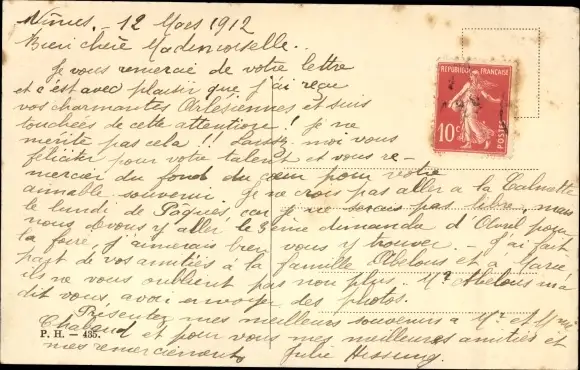 Nîmes, - 12 Mars 1912
Bien chère Mademoiselle..
Je vous remercie de votre lettre
et c'est avec plaisir que j'ai reçu
vos charmantes Arlésiennes et suis
touchées de cette attentions! Je ne
mérite pas cela!! Laissez-moi vous
féliciter pour votre talent et vous re-
mercier du fond du cœur pour votre
aimable souvenir. Je ne crois pas aller a la Calmette
le lundi de Pâques, car je ne serais pas libre, mais
nous devons y aller le 3ème dimanche d'Avril pour
la foire, j'aimerais bien vous y trouver. - J'ai fait
part de vos amitiés à la famille Abelous et à Marie
ils ne vous oublient pas non plus. Mr Abelous m'a
dit vous, avoir envoyer des photos.
Présentez mes meilleurs souvenirs a Mr et Mme
Chabaud et pour vous mes meilleures amitiés et
mes remerciements Julie
P. H. — 435.
REPUBLIQUE FRANÇAISE
10c
POSTES